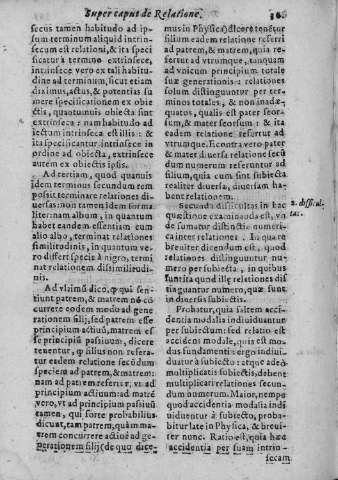 Super caput de Relatione.
secus tamen habitudo ad ip-
sum terminum aliquid intrin-
secum est relationi, & ita speci
ficatur à termino extrinsece,
intrinsece vero ex tali habitu-
dine ad terminum, sicut etiam
diximus, actus, & potentias su
mere specificationem ex obie
ctis, quantumuis obiecta sint
extrinseca: nam habitudo ad
iectum intrinseca est illis: &
ita specificantur intrinsece in
ordine ad obiecta, extrinsece
autem ex obiectis ipsis.
Ad tertium, quod quamuis
idem terminus secundum rem
possit terminare relationes di-
uersas: non tamen idem forma
liter: nam album, in quantum
habet eandem essentiam cum
alio albo, terminat relationes
similitudinis, in quantum ve-
ro differt specie à nigro, termi
nat relationem dissimilitudi-
nis.
Ad vltimũ dico, qui sen-
tiunt patrem, & matrem nõ cõ
currere eodem modo ad gene
rationem filij, sed patrem esse
principium actiuũ, matrem es
se principiũ passiuum, dicere
tenentur, filius non refera-
tur eadem relatione secũdum
speciem ad patrem, & matrem:
nam ad patrem refertur, vt ad
principium actiuum: ad matrẽ
vero, vt ad principium passiuũ
tamen, qui forte probabilius
dicunt, tam patrem, quàm ma-
trem concurrere actiuè ad ge-
nerationem filij (de quo dice-
mus in Physica) dicere tenẽtur
filium eadem relatione referri
ad patrem, & matrem, quia re-
fertur ad vtrumque, tanquam
ad vnicum principium totale
suæ generationis: relationes
solum distinguuntur per ter-
minos totales, & non inadæ-
quatos, qualis est pater seor-
sum, & mater seorsum: & ita
eadem relatione refertur ad
vtrumque. E contra vero pater
& mater diuersa relatione secũ
dum numerum referuntur ad
filium, quia cum sint subiecta
realiter diuersa, diuersam ha-
bent relationem.
Secunda difficultas in hac
quæstione examinanda est, vn
de sumatur distinctio numeri-
ca inter relationes. In qua re
breuiter dicendum est, quod
relationes distinguuntur nu-
mero per subiecta, in quibus
sunt: ita quod illę relationes dis
tinguantur numero, quæ sunt
in diuersis subiectis.
2. difficul-
tas.
Probatur, quia saltem acci-
dentia modalia indiuiduantur
per subiectum: sed relatio est
accidens modale, quia est mo-
dus fundamenti: ergo indiui-
duatur à subiecto: atque adeò
multiplicatis subiectis, debent
multiplicari relationes secun-
dum numerum. Maior, nempe
quod accidentia modalia indi
uiduentur à subiecto, proba-
bitur late in Physica, & breui-
ter nunc. Ratio est, quia hæc
accidentia per suam intrin-
secam